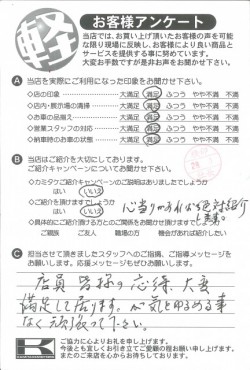 軽
お客様アンケート
当店では、お買い上げ頂いたお客様の声を可能
な限り現場に反映し、お客様により良い商品と
サービスを提供する事に努めています。
大変お手数ですが是非お声をお聞かせ下さい。
A 当店を実際にご利用になった印象をお聞かせ下さい。
◇店の印象 大満足 満足 ふつう やや不満 不満
◇店内・展示場の清掃 大満足 満足 ふつう やや不満 不満
◇お車の品揃え 大満足 満足 ふつう やや不満 不満
◇営業スタッフの対応 大満足 満足 ふつう やや不満 不満
◇納車時のお車の状態 大満足 満足 ふつう やや不満 不満
B 当店はご紹介を大切にしております。
ご紹介キャンペーンについてお聞かせ下さい。
◇カミタケご紹介キャンペーンのご説明はありましたでしょうか
はい いいえ
◇ご紹介を頂けますでしょうか
はい いいえ
心当りがあれば絶対紹介
します。
◇具体的にご紹介頂ける方とのご関係をお聞かせ頂けますでしょうか
ご親族 ご友人 職場の方 機会があれば紹介したい
C 担当させて頂きましたスタッフへのご指摘、ご指導メッセージを
お願いします。応援メッセージもぜひお願いします。
店員皆様の応待、大変
満足して居ります。気をゆるめる事
なく頑張って下さい。
K
ご協力に心よりお礼を申し上げます。
今後とも宜しくお引き立てご愛顧の程お願い申し上げます。
またのご来店を心からお待ちしております。